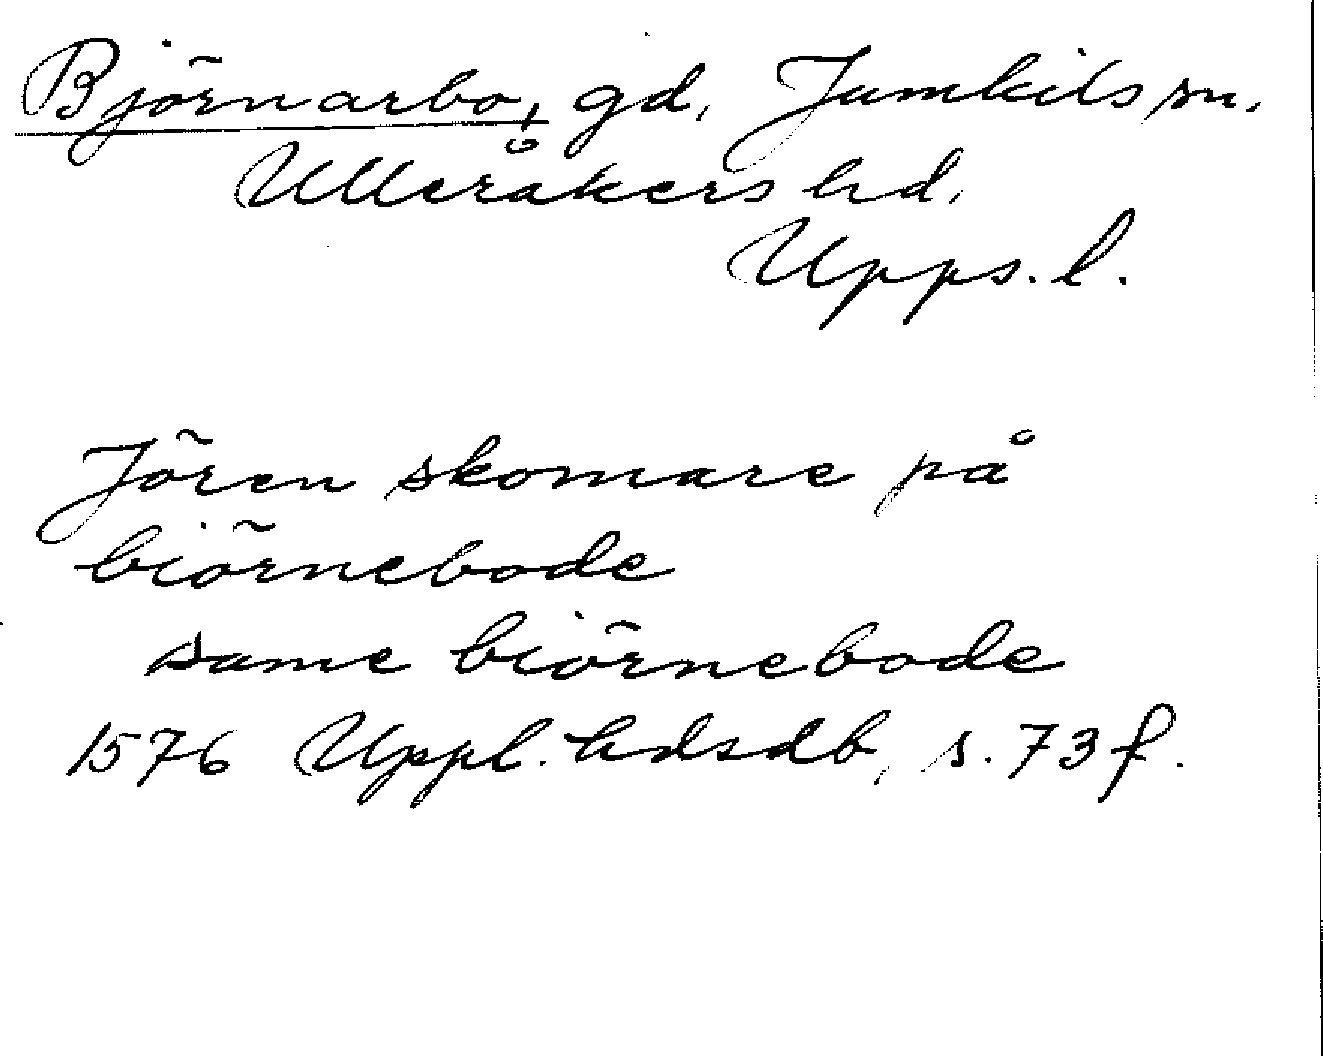 Björnarbo, gd, Jumkils sn.
Ulleråkers hd,
Upps. l.
Jören skomare på
biörnebode
same biörnebode
1576 Uppl. hdsdb, s. 73 f.